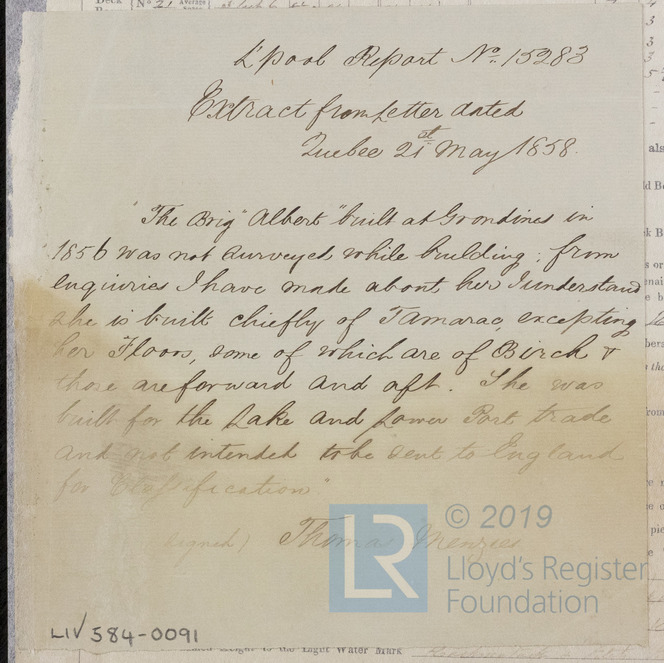 L'pool Report No. 15283
Extract from Letter dated
Quebec 21st May 1858.
"The Brig "Albert" built at Grondines in
1856 was not surveyed while building; from
enquiries I have made about her I understand
she is built chiefly of Tamarac, excepting
her Floors, some of which are of Birch &
those are forward and aft. She was
built for the Lake and Lower Port trade
and not intended to be sent to England
for Classification"
(signed) Thomas Menzies
© 2019
LR
Lloyd's Register
Foundation
LIV 584-0091